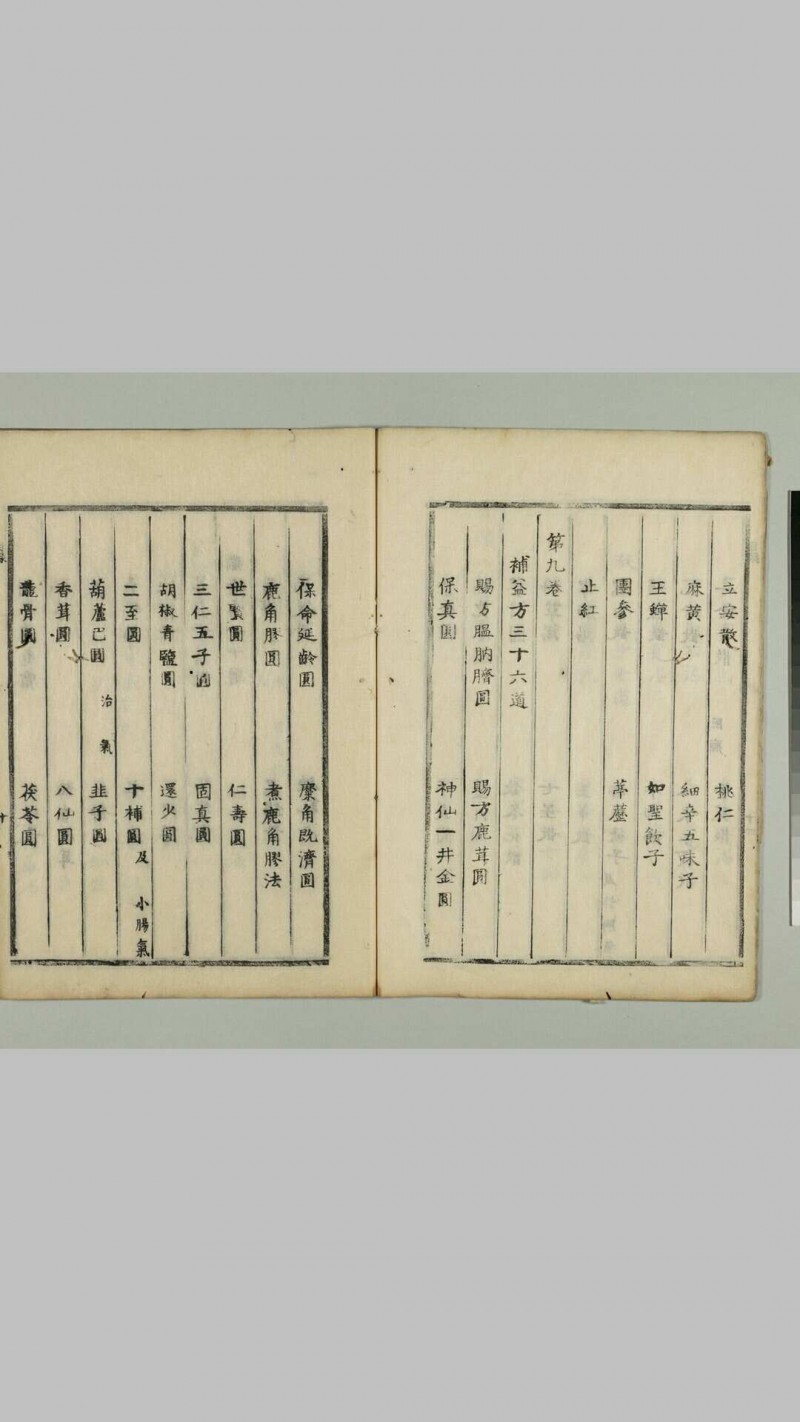 立安散 桃仁
麻黄 細辛五味子
玉蟬 如聖飲子
團參 葶藶
止紅
第九卷
補益方三十六道
賜方膃肭臍圓 賜方鹿茸圓
保真圓 神仙一井金圓
保命延齡圓 麋角既濟圓
鹿角膠圓 煮鹿角膠法
世寶圓 仁壽圓
三仁五子圓 固真圓
胡椒青鹽圓 還少圓
二至圓 十補圓 及小腸氣
葫蘆巴圓 治氣 韭子圓
香茸圓 八仙圓
龍骨圓 茯苓圓